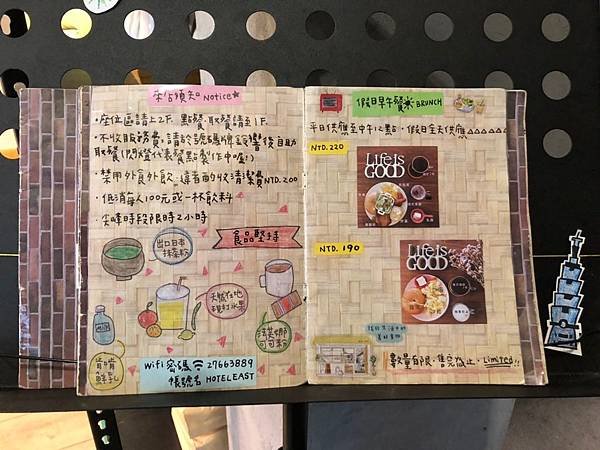 來店須知 Notice
・座位區請上2F. 點餐.取餐請至1F.
・不收服務費，請於號碼牌響後自助
取餐(閃燈代表餐點製作中喔!)
・禁用外食外飲.違者酌收清潔費NTD.200
・低消每人100元或一杯飲料
・尖峰時段限時2小時
食品堅持
出口日本
抹茶粉
天然在地
現打水果
法芙娜
可可粉
MILK
鮮乳
Wifi 密碼 27663889
帳號名 HOTELEAST
假日早午餐 BRUNCH
平日供應至中午12點.假日全天供應
NTD.220
LIFE IS
GOOD
NTD.190
LIFE IS
GOOD
數量有限.售完為止.Limited!!